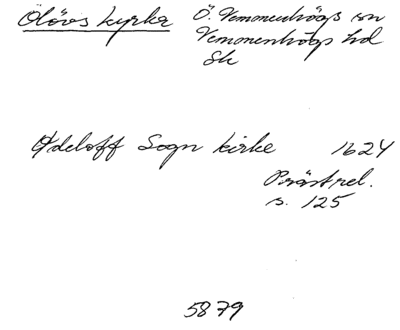 Ölövs kyrka Ö. Vemmenhögs sn
Vemmenhögs hd
Sk
Odeloff Sogn kirke 1624
Prästrel.
s. 125
5879